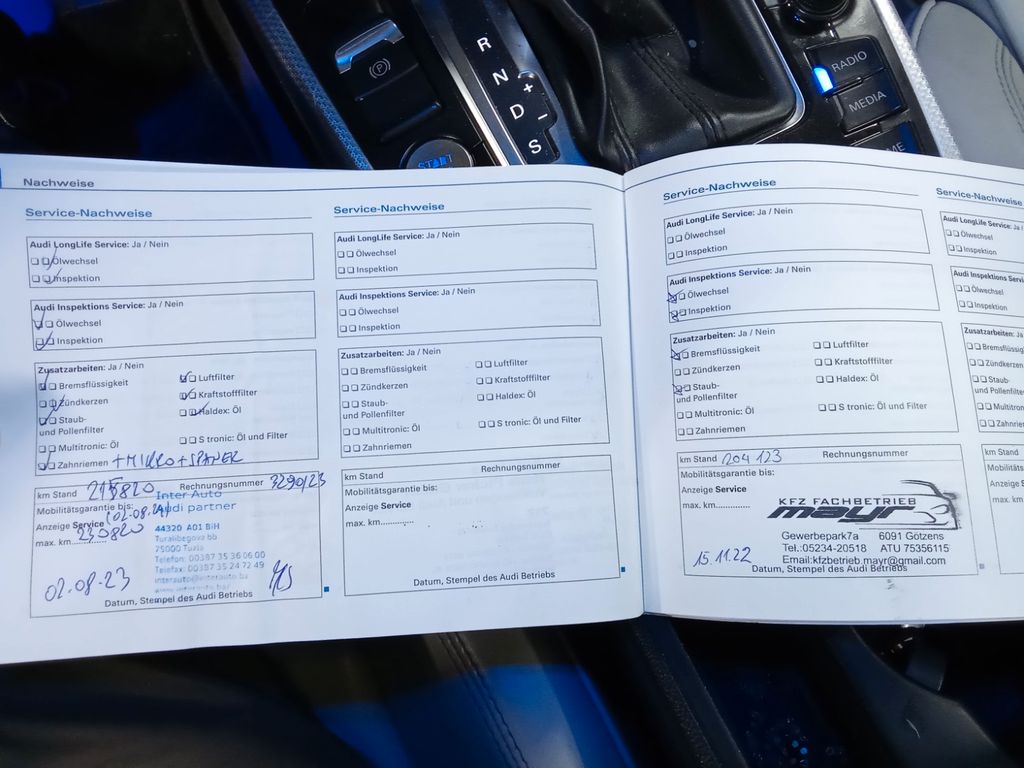 R
N
D
+
-
S
START
(P)
RADIO
MEDIA
Nachweise
Service-Nachweise
Audi LongLife Service: Ja / Nein
Ölwechsel
Inspektion
Audi Inspektions Service: Ja / Nein
Ölwechsel
Inspektion
Zusatzarbeiten: Ja / Nein
Bremsflüssigkeit
Luftfilter
Zündkerzen
Kraftstofffilter
Staub-
und Pollenfilter
Haldex: Öl
Multitronic: Öl
S tronic: Öl und Filter
Zahnriemen +MIKRO+SPANER
km Stand 215820 Rechnungsnummer 3290/23
Mobilitätsgarantie bis: (02.08.24)
Anzeige Service
max. km 230820
Inter Auto
Audi partner
44320 A01 BiH
Turalibegova bb
75000 Tuzla
Telefon: 00387 35 36 06 00
Telefax: 00387 35 24 72 49
interauto@interauto.ba
www.interauto.ba/
02.08.23
Datum, Stempel des Audi Betriebs
Service-Nachweise
Audi LongLife Service: Ja / Nein
Ölwechsel
Inspektion
Audi Inspektions Service: Ja / Nein
Ölwechsel
Inspektion
Zusatzarbeiten: Ja / Nein
Bremsflüssigkeit
Luftfilter
Zündkerzen
Kraftstofffilter
Staub-
und Pollenfilter
Haldex: Öl
Multitronic: Öl
S tronic: Öl und Filter
Zahnriemen
km Stand Rechnungsnummer
Mobilitätsgarantie bis:
Anzeige Service
max. km.............
Datum, Stempel des Audi Betriebs
Service-Nachweise
Audi LongLife Service: Ja / Nein
Ölwechsel
Inspektion
Audi Inspektions Service: Ja / Nein
Ölwechsel
Inspektion
Zusatzarbeiten: Ja / Nein
Bremsflüssigkeit
Luftfilter
Zündkerzen
Kraftstofffilter
Staub-
und Pollenfilter
Haldex: Öl
Multitronic: Öl
S tronic: Öl und Filter
Zahnriemen
km Stand 204 123 Rechnungsnummer
Mobilitätsgarantie bis:
Anzeige Service
max. km.............
KFZ FACHBETRIEB
mayr
Gewerbepark7a 6091 Götzens
Tel.:05234-20518 ATU 75356115
Email:kfzbetrieb.mayr@gmail.com
15.11.22
Datum, Stempel des Audi Betriebs
Service-Nachweise
Audi LongLife Service:
Ölwechsel
Inspektion
Audi Inspektions Servic
Ölwechsel
Inspektion
Zusatzarbeiten: Ja / Nein
Bremsflüssigkeit
Zündkerzen
Staub-
und Pollenfilter
Multitronic: Öl
Zahnriemen
km Stand
Mobilitäts
Anzeige S
max. km